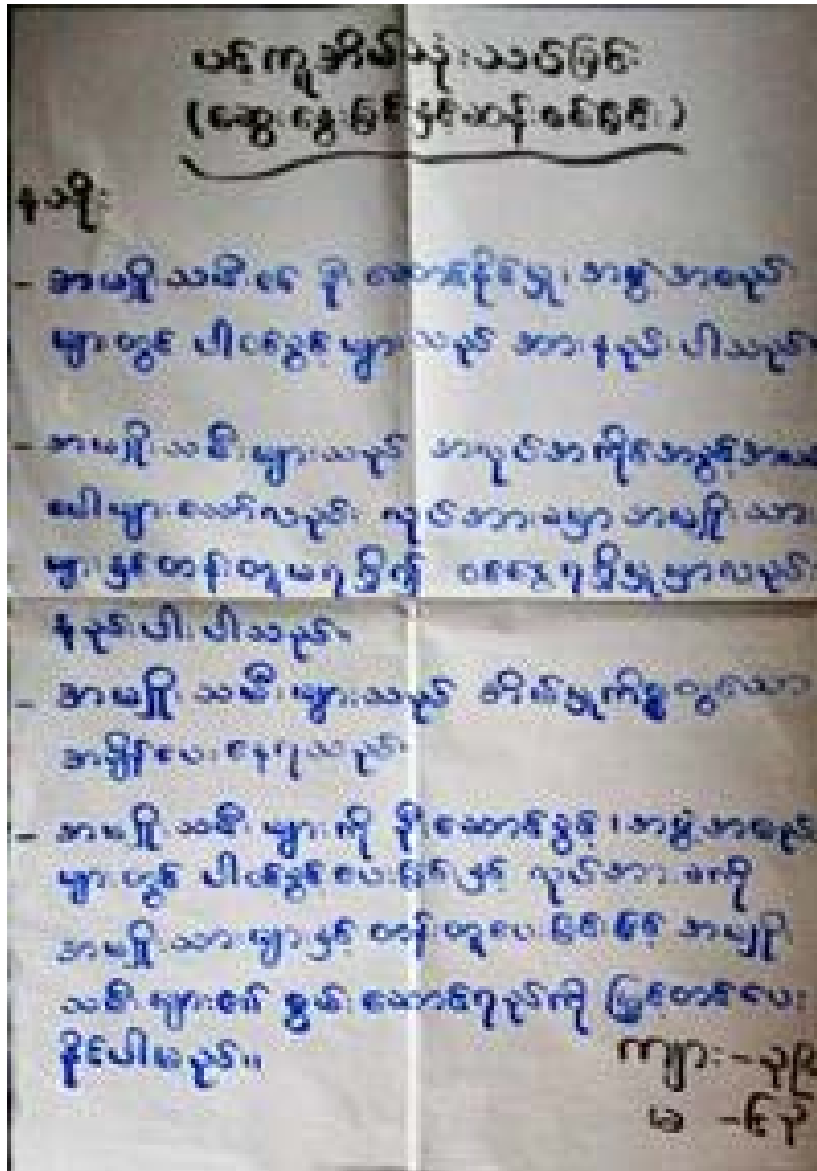 ပင့်ကူအိမ်သုံးသပ်ခြင်း
(ဆွေးနွေးခြင်းနှင့်ဆန်းစစ်ခြင်း)
နမူနာ
- အမျိုးသမီး၏ ဦးဆောင်နိုင်မှု၊ အဖွဲ့အစည်း
များတွင် ပါဝင်ခွင့် များသည် အားနည်းပါသည်။
- အမျိုးသမီးများသည် အလုပ်အကိုင်အခွင့်အလမ်း
ပေါများသော်လည်း လုပ်အားခမှာ အမျိုးသား
များနှင့်တန်းတူမရရှိ၍ ဝင်ငွေရရှိမှုမှာလည်း
နည်းပါးပါသည်။
- အမျိုးသမီးများသည် အိမ်မှုကိစ္စတွင်သာ
အချိန်ပေးနေရသည်
- အမျိုးသမီးများကို ဦးဆောင်ခွင့်၊ အဖွဲ့အစည်း
များတွင် ပါဝင်ခွင့်ပေးခြင်းနှင့် လုပ်အားခကို
အမျိုးသားများနှင့် တန်းတူပေးခြင်းဖြင့် အမျိုး
သမီးများ၏ စွမ်းဆောင်ရည်ကို မြှင့်တင်ပေး
နိုင်ပါမည်။
ကျား -
မ -